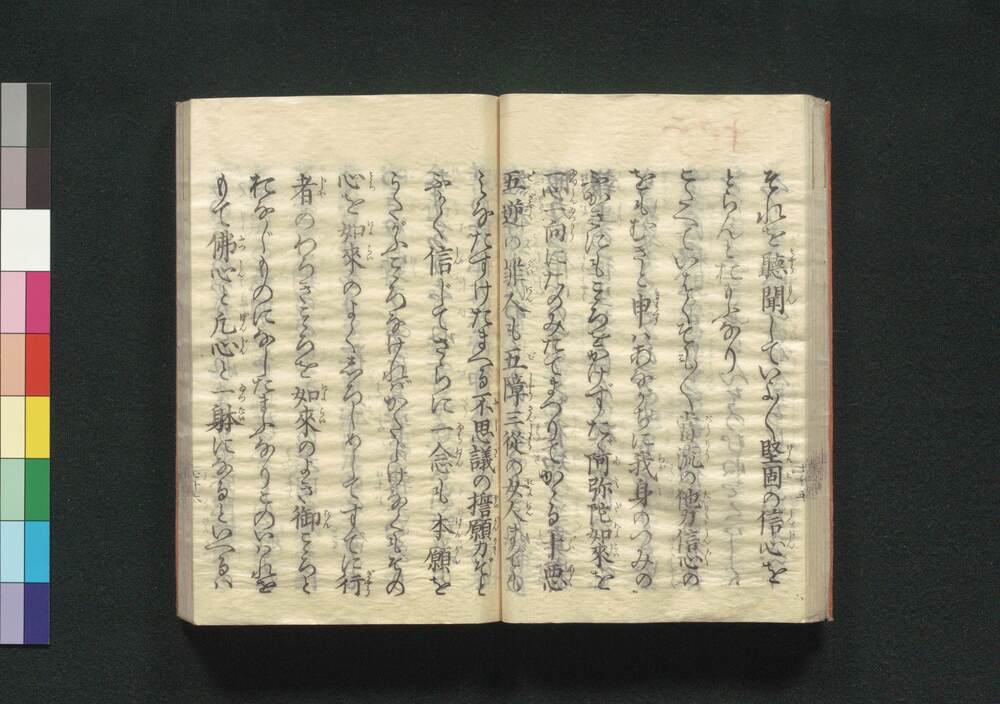 それを聽聞していよ〱堅固の信心を
とらんとおもふなり
こたへていはくそも〱當流の他力信心の
をもむきと申はあながちに我身のつみの
ふかきにもこゝろをかけずたゞ阿弥陀如來を
一心一向にたのみたてまつりてかゝる十悪
五逆の罪人も五障三從の女人までも
みなたすけたまへる不思議の誓願力ぞと
ふかく信じてさらに一念も本願を
うたがふこゝろなければかたじけなくもその
心を如來のよくしろしめしてすでに行
者のわろきこゝろを如來のよき御こゝろと
おなじものになしたまふなりこのいはれを
もて佛心と凡心と一躰になるといへるは